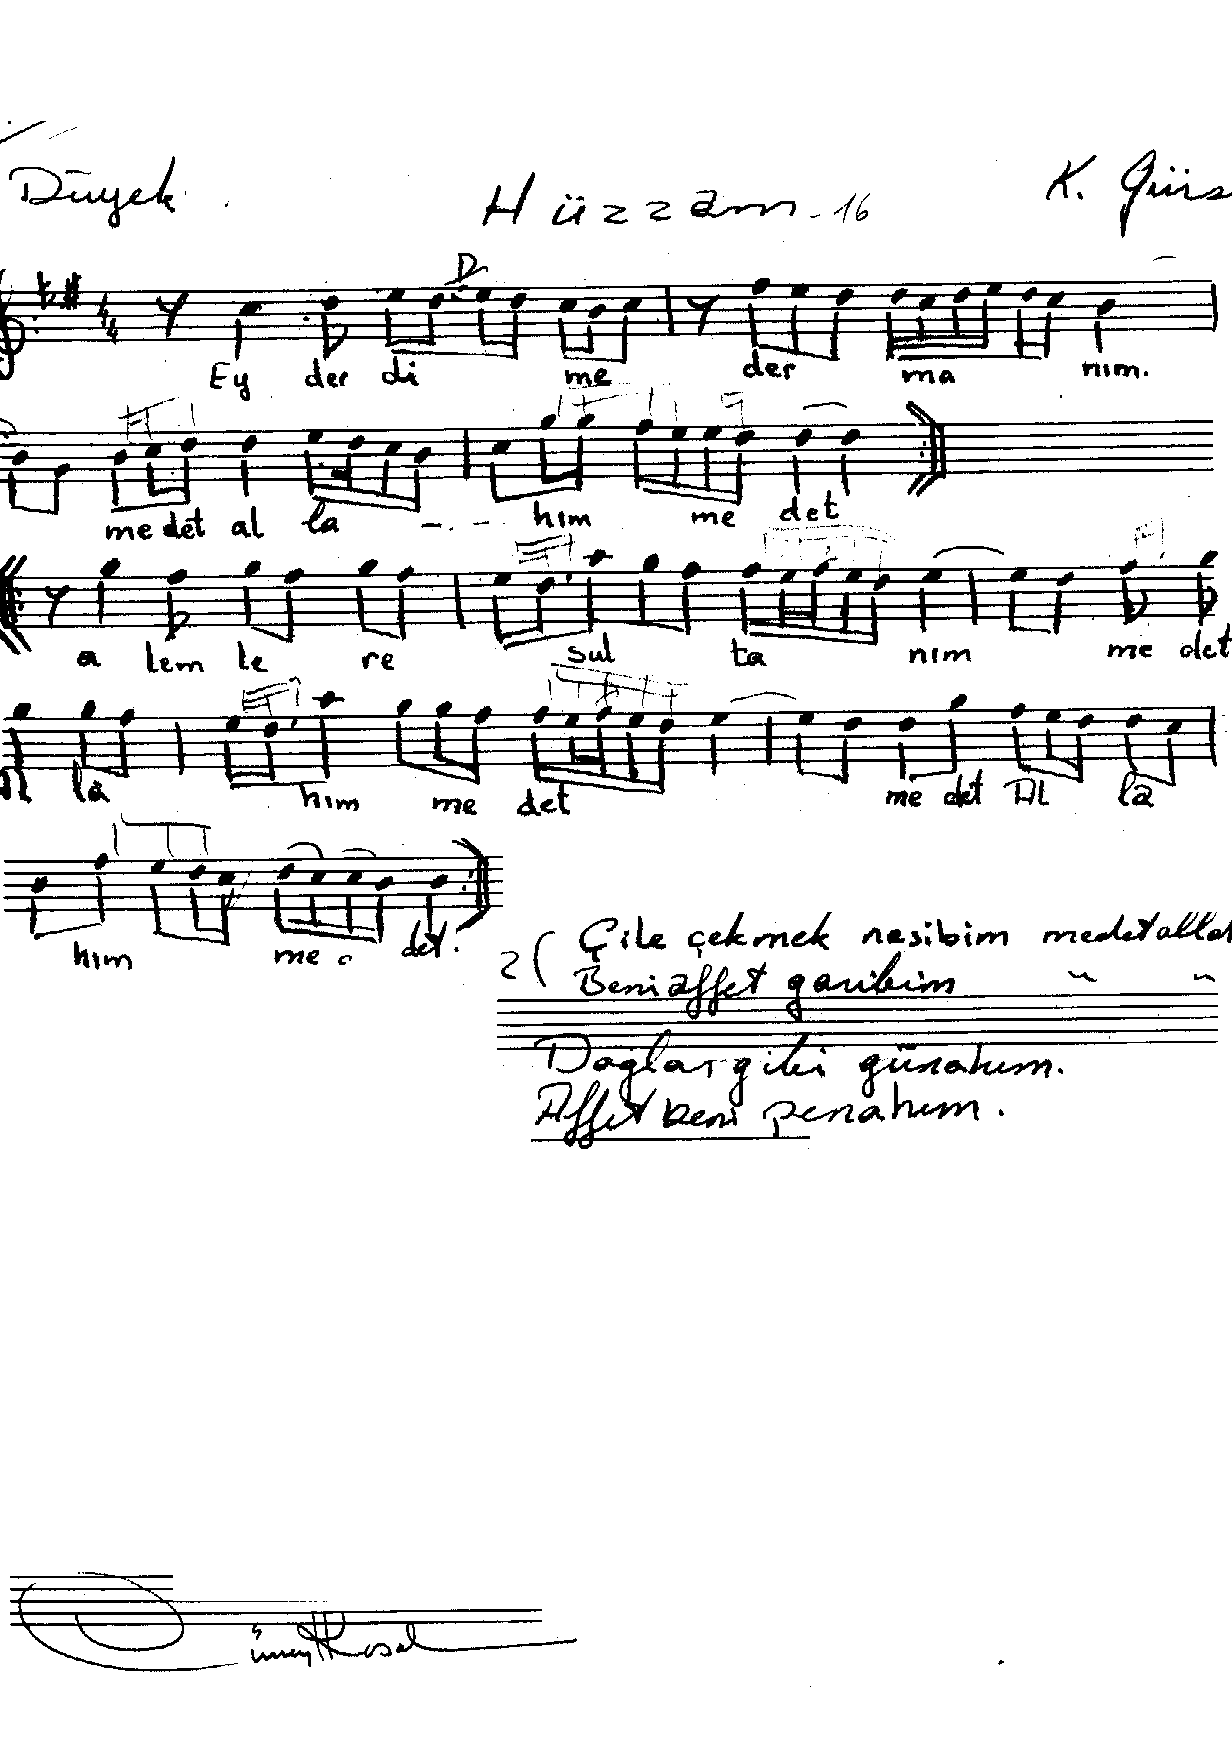 Düyek Hüzzam - 16 K. Gürs
Ey der di me der ma nım.
me det al la - . - - hım me det
a lem le re sul ta nım me det
Al la hım me det me det Al la
hım me det.
2 ( Çile çekmek nasibim medet allah
Beni affet garibim " "
Dağlar gibi günahım.
Affet beni penahım.